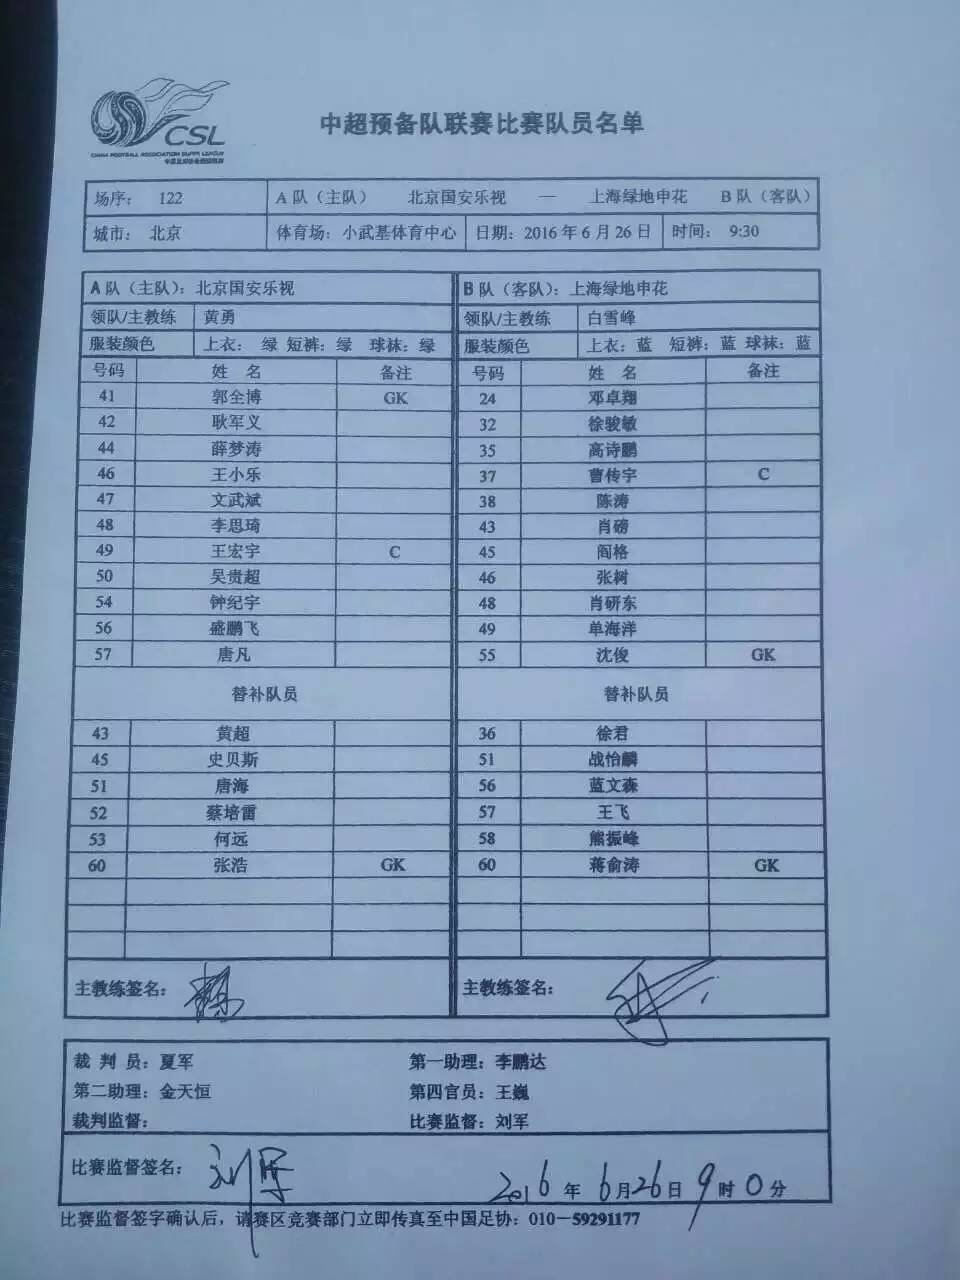 CSL
CHINA FOOTBALL ASSOCIATION SUPER LEAGUE
中超预备队联赛比赛队员名单
场序： 122 A 队（主队） 北京国安乐视 — 上海绿地申花 B 队（客队）
城市： 北京 体育场：小武基体育中心 日期：2016 年 6 月 26 日 时间： 9:30
A 队（主队）：北京国安乐视 B 队（客队）：上海绿地申花
领队/主教练 黄勇 领队/主教练 白雪峰
服装颜色 上衣： 绿 短裤：绿 球袜：绿 服装颜色 上衣：蓝 短裤：蓝 球袜：蓝
号码 姓 名 备注 号码 姓 名 备注
41 郭全博 GK 24 邓卓翔
42 耿军义 32 徐骏敏
44 薛梦涛 35 高诗鹏
46 王小乐 37 曹传宇 C
47 文武斌 38 陈涛
48 李思琦 43 肖磅
49 王宏宇 C 45 阎格
50 吴贵超 46 张树
54 钟纪宇 48 肖研东
56 盛鹏飞 49 单海洋
57 唐凡 55 沈俊 GK
替补队员 替补队员
43 黄超 36 徐君
45 史贝斯 51 战怡麟
51 唐海 56 蓝文淼
52 蔡培雷 57 王飞
53 何远 58 熊振峰
60 张浩 GK 60 蒋俞涛 GK
主教练签名： 主教练签名：
裁 判 员：夏军 第一助理：李鹏达
第二助理：金天恒 第四官员：王巍
裁判监督： 比赛监督：刘军
比赛监督签名： 刘军 2016 年 6月26日 9时 0分
比赛监督签字确认后，请赛区竞赛部门立即传真至中国足协：010—59291177